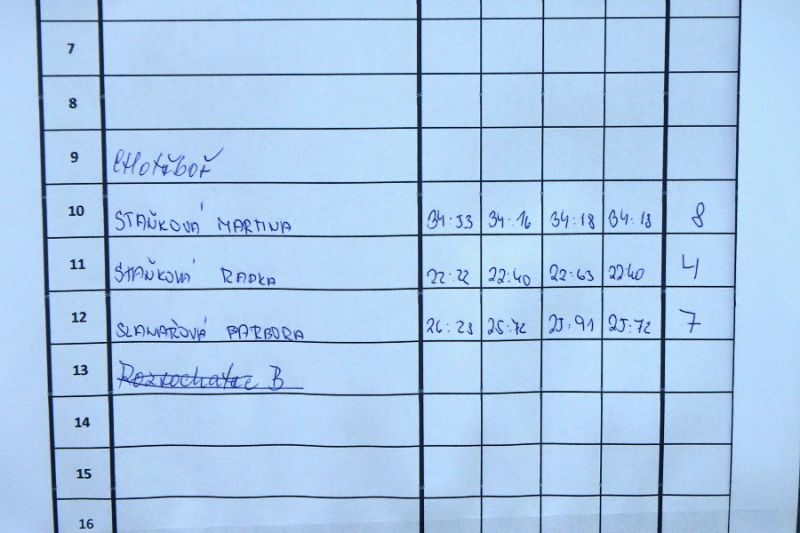 7
8
9 Chotěboř
10 STAŇKOVÁ MARTINA 34:53 34:16 34:18 34:18 8
11 STAŇKOVÁ RADKA 22:22 22:40 22:63 22:40 4
12 SLANAŘOVÁ BARBORA 26:23 25:72 25:91 25:72 7
13 Rozsochatec B
14
15
16